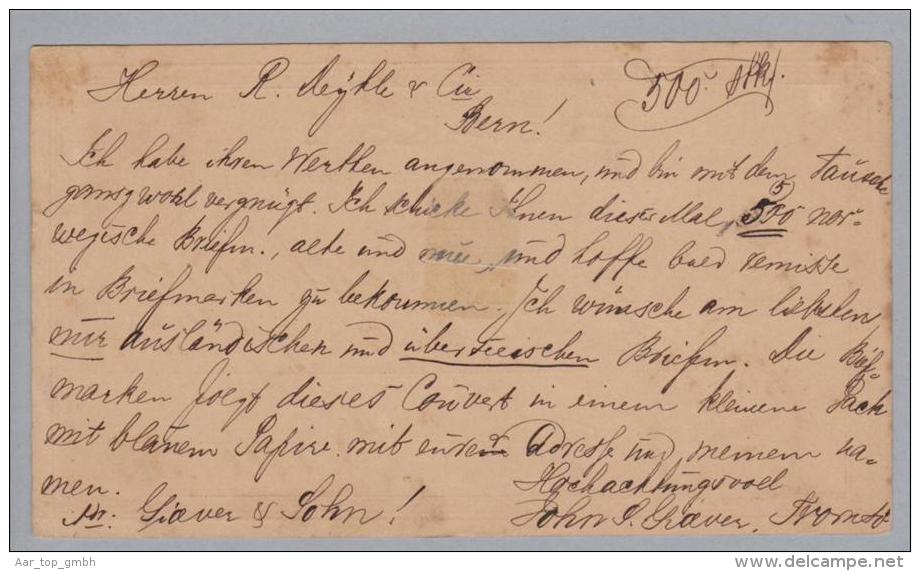 Herren R. Deyhle & Cie
500 stk.
Bern!
Ich habe ihren Werthen angenommen, und bin mit dem Tausch
ganz wohl vergnügt. Ich schicke Ihnen dieses Mal 500 nor-
wegische Briefm., alte und neue, und hoffe bald remisse
in Briefmarken zu bekommen. Ich wünsche am liebsten
nur ausländischen und überseeischen Briefm. Die Brief-
marken folgt dieses Couvert in einem kleinene Pack
mit blauem Papire mit eurer Adresse und meinem na-
men.
Hochachtungsvoll
Nr. Giæver & Sohn!
John P. Giæver, Tromsö
Aar_top_gmbh
www.delcampe.net